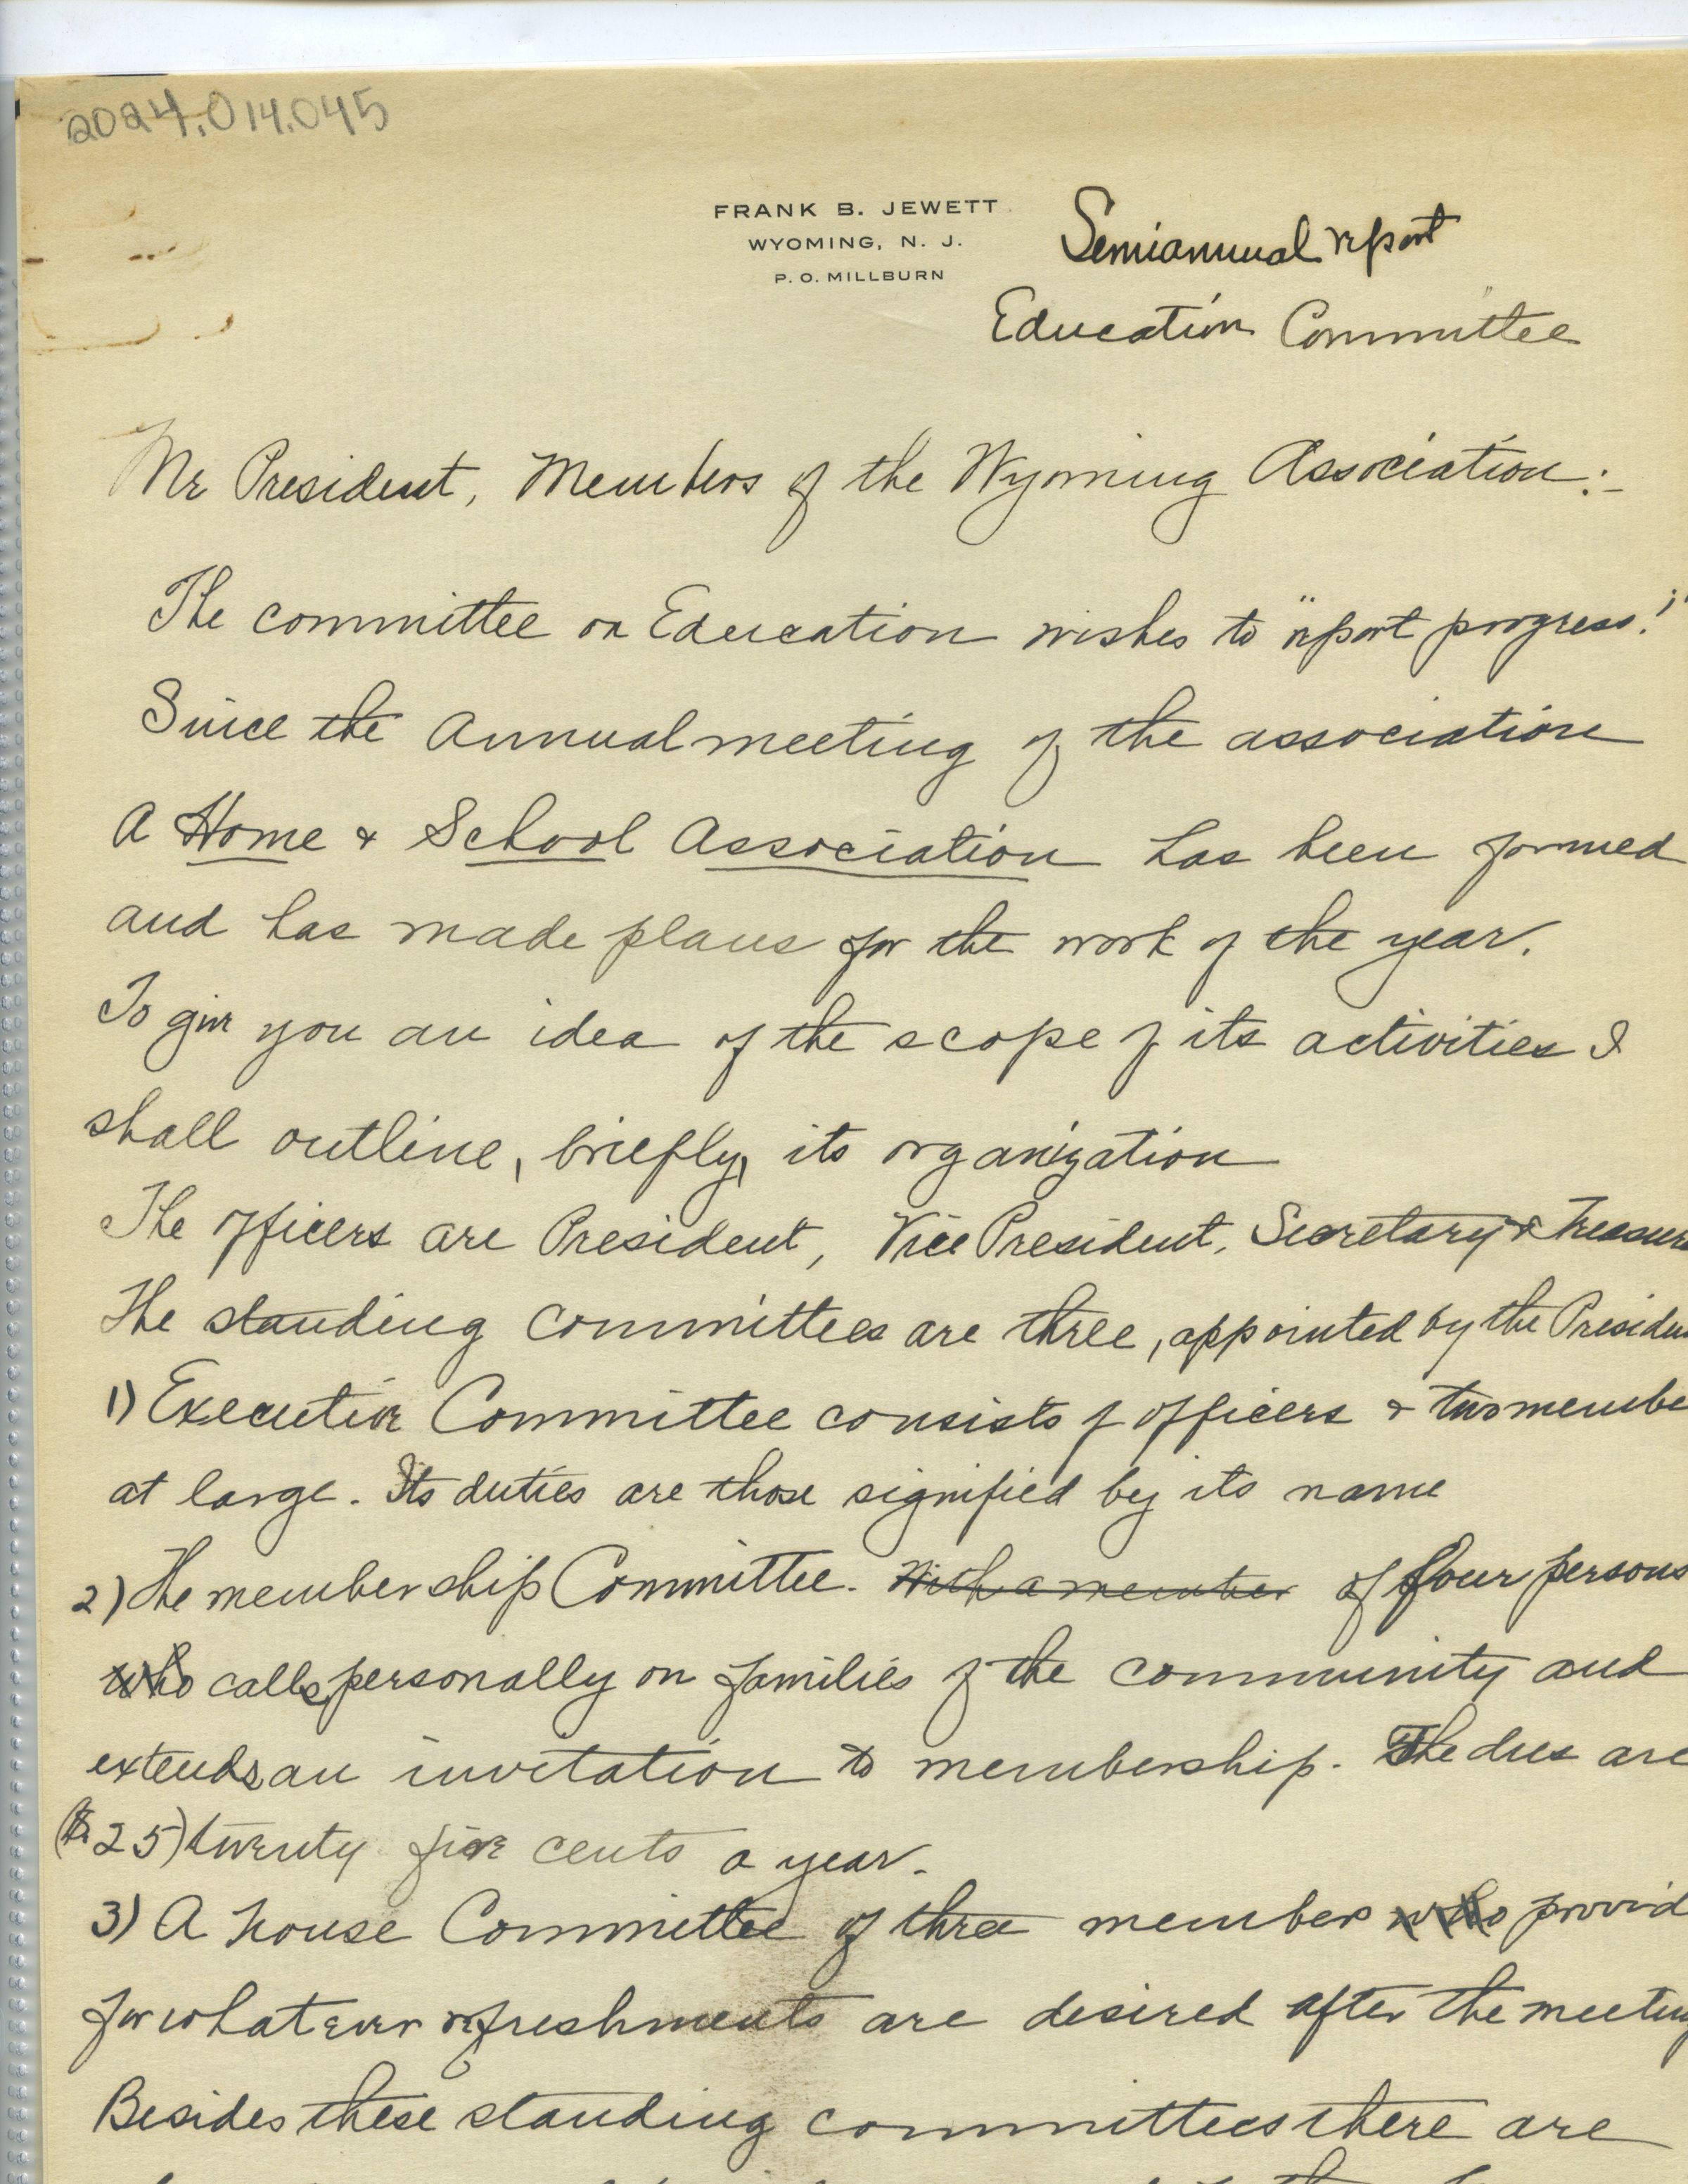 2024.014.045
FRANK B. JEWETT
WYOMING, N. J.
P. O. MILLBURN
Semiannual report
Education Committee
Mr President, Members of the Wyoming Association:-
The committee on Education wishes to "report progress."
Since the Annual meeting of the association
A Home & School Association has been formed
and has made plans for the work of the year.
To give you an idea of the scope of its activities I
shall outline, briefly, its organization
The officers are President, Vice President, Secretary & Treasure
The standing committees are three, appointed by the Presiden
1) Executive Committee consists of officers & two membe
at large. Its duties are those signified by its name
2) The membership Committee. With a member of four persons
who calls personally on families of the community and
extends an invitation to membership. The dues are
($.25) twenty five cents a year.
3) A house Committee of three members who provid
for whatever refreshments are desired after the meeting
Besides these standing committees there are